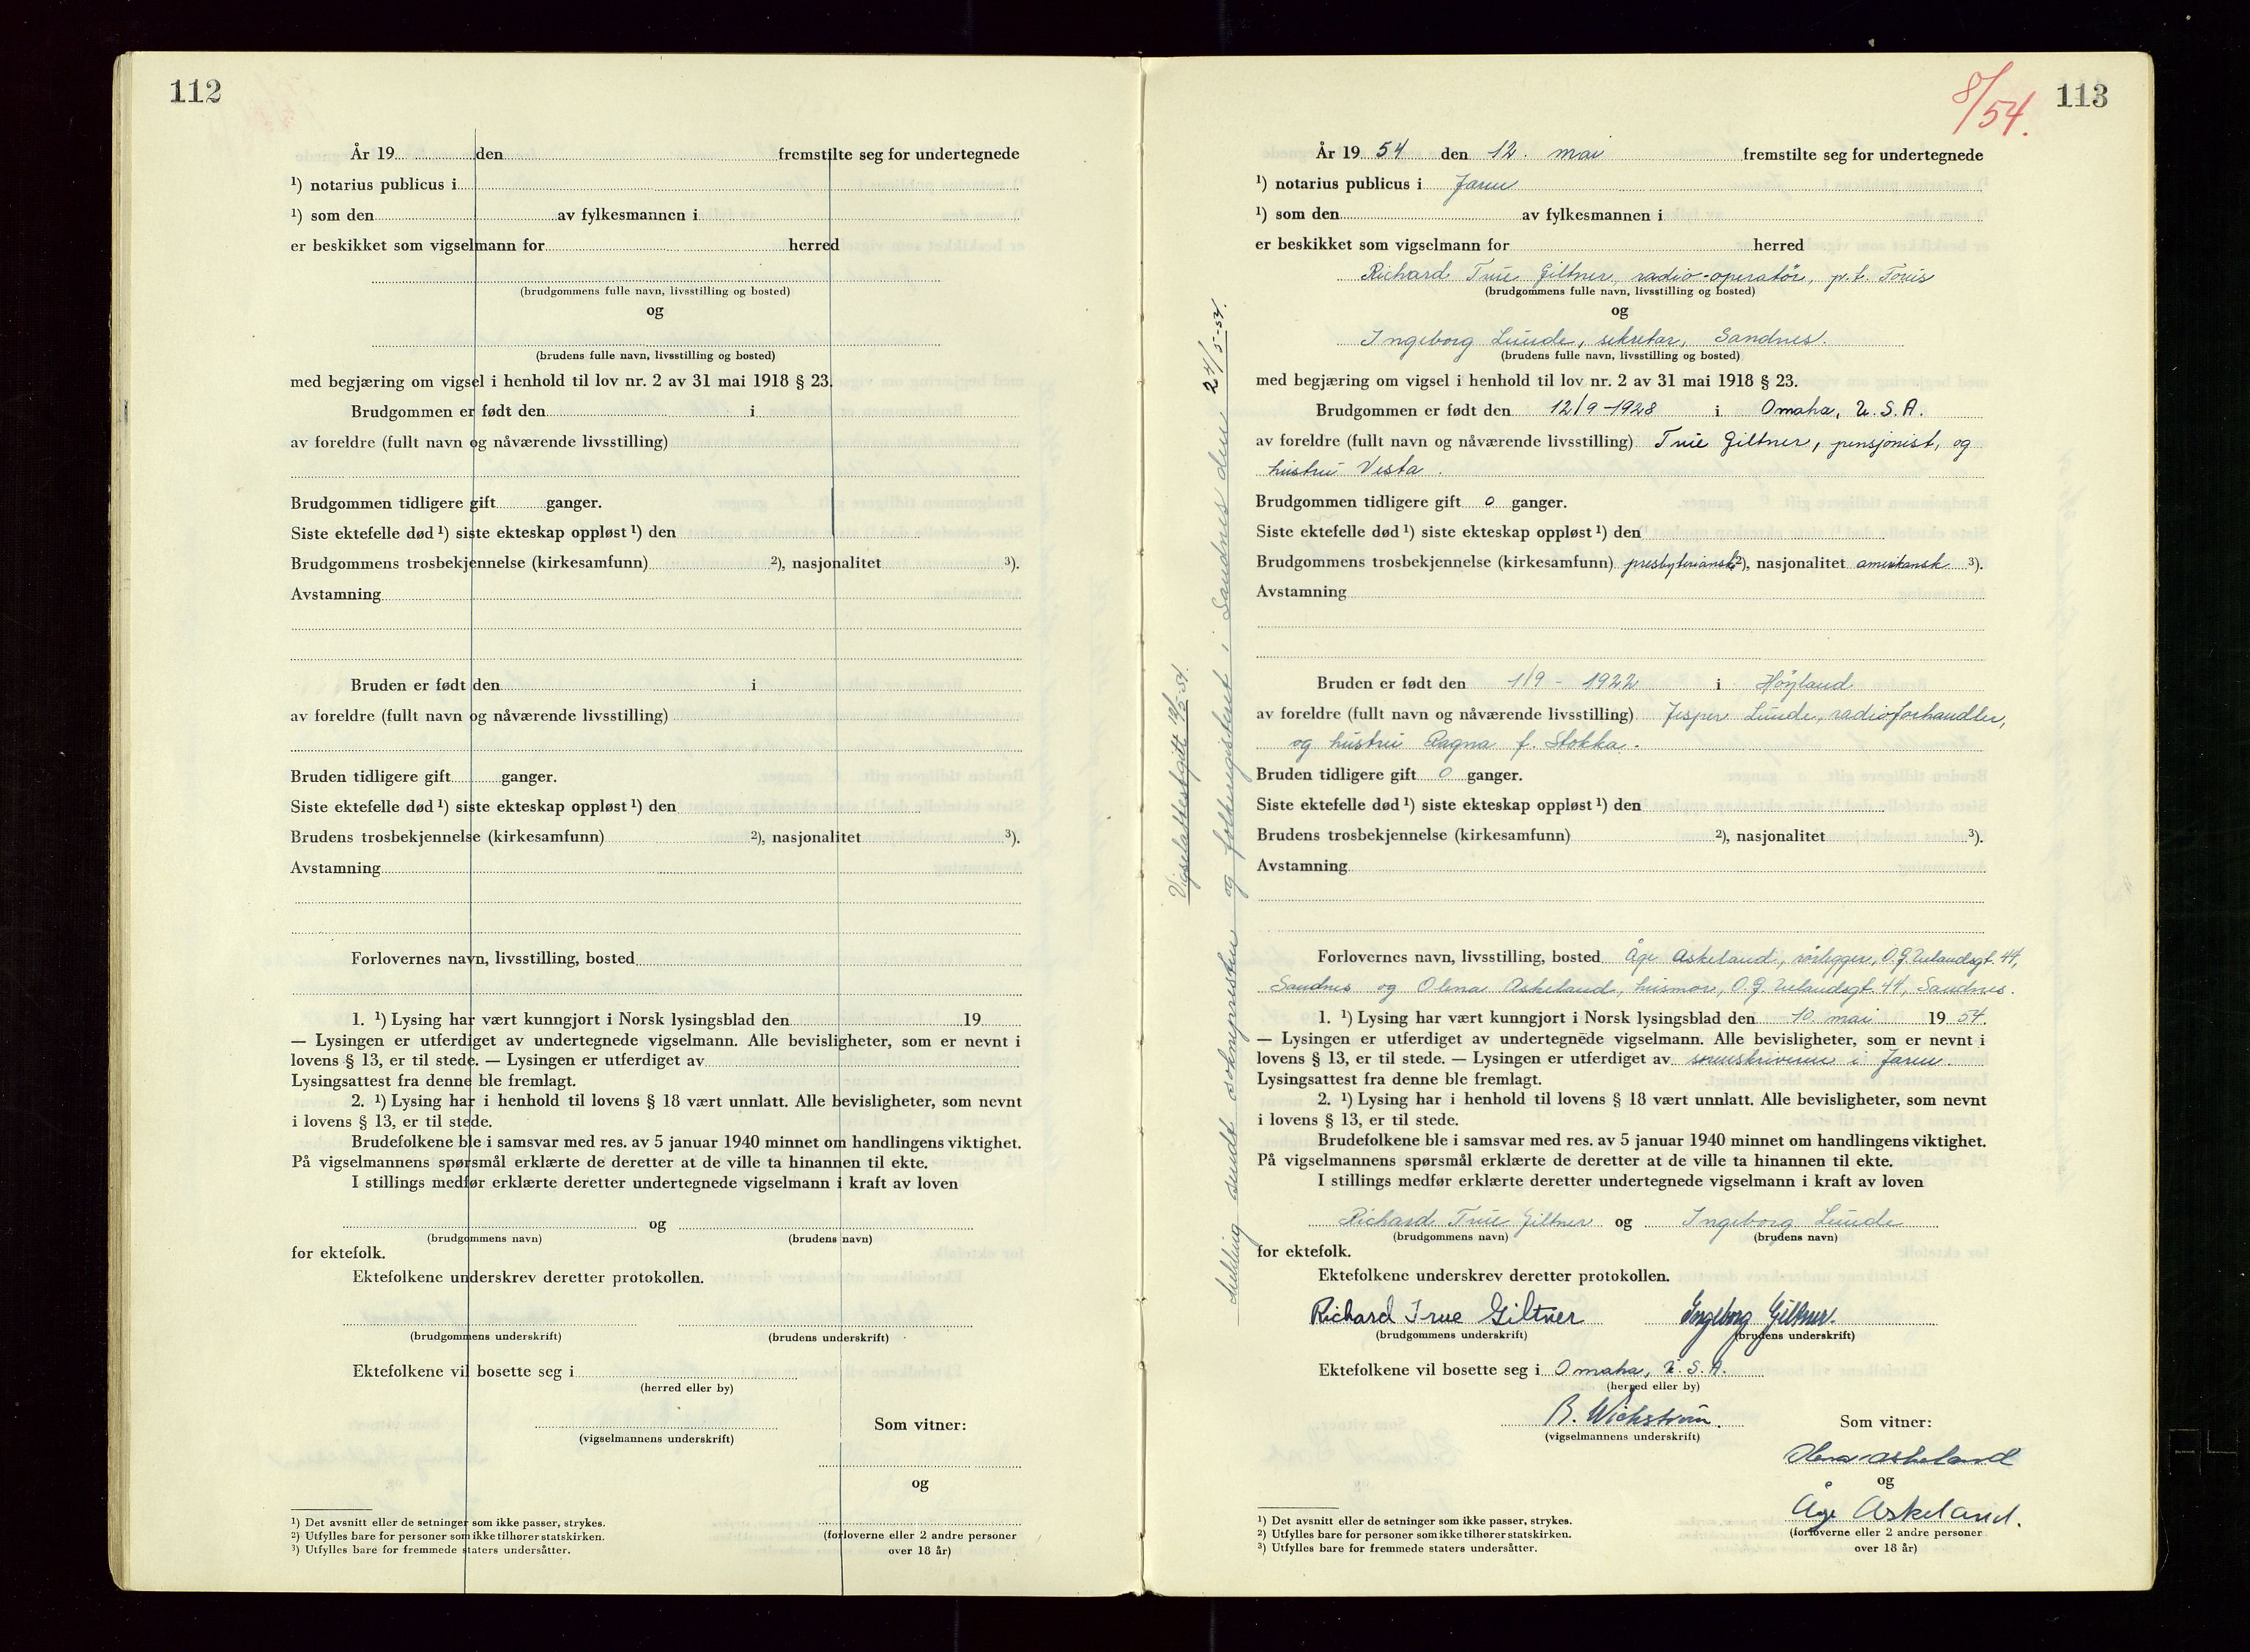 112
År 19 den fremstilte seg for undertegnede
¹) notarius publicus i
¹) som den av fylkesmannen i
er beskikket som vigselmann for herred
(brudgommens fulle navn, livsstilling og bosted)
og
(brudens fulle navn, livsstilling og bosted)
med begjæring om vigsel i henhold til lov nr. 2 av 31 mai 1918 § 23.
Brudgommen er født den i
av foreldre (fullt navn og nåværende livsstilling)
Brudgommen tidligere gift ganger.
Siste ektefelle død ¹) siste ekteskap oppløst ¹) den
Brudgommens trosbekjennelse (kirkesamfunn) ²), nasjonalitet ³).
Avstamning
Bruden er født den i
av foreldre (fullt navn og nåværende livsstilling)
Bruden tidligere gift ganger.
Siste ektefelle død ¹) siste ekteskap oppløst ¹) den
Brudens trosbekjennelse (kirkesamfunn) ²), nasjonalitet ³).
Avstamning
Forlovernes navn, livsstilling, bosted
1. ¹) Lysing har vært kunngjort i Norsk lysingsblad den 19
— Lysingen er utferdiget av undertegnede vigselmann. Alle bevisligheter, som er nevnt i
lovens § 13, er til stede. — Lysingen er utferdiget av
Lysingsattest fra denne ble fremlagt.
2. ¹) Lysing har i henhold til lovens § 18 vært unnlatt. Alle bevisligheter, som nevnt
i lovens § 13, er til stede.
Brudefolkene ble i samsvar med res. av 5 januar 1940 minnet om handlingens viktighet.
På vigselmannens spørsmål erklærte de deretter at de ville ta hinannen til ekte.
I stillings medfør erklærte deretter undertegnede vigselmann i kraft av loven
og
(brudgommens navn) (brudens navn)
for ektefolk.
Ektefolkene underskrev deretter protokollen.
(brudgommens underskrift) (brudens underskrift)
Ektefolkene vil bosette seg i
(herred eller by)
(vigselmannens underskrift)
Som vitner:
og
(forloverne eller 2 andre personer
over 18 år)
¹) Det avsnitt eller de setninger som ikke passer, strykes.
²) Utfylles bare for personer som ikke tilhører statskirken.
³) Utfylles bare for fremmede staters undersåtter.
8/54.
113
År 19 54 den 12. mai fremstilte seg for undertegnede
¹) notarius publicus i Jæren
¹) som den av fylkesmannen i
er beskikket som vigselmann for herred
Richard True Giltner, radio-operatör, p.t. Forus
(brudgommens fulle navn, livsstilling og bosted)
og
Ingeborg Lunde, sekretær, Sandnes.
(brudens fulle navn, livsstilling og bosted)
med begjæring om vigsel i henhold til lov nr. 2 av 31 mai 1918 § 23.
Brudgommen er født den 12/9-1928 i Omaha, U.S.A.
av foreldre (fullt navn og nåværende livsstilling) True Giltner, pensjonist, og
hustru Vesta.
Brudgommen tidligere gift 0 ganger.
Siste ektefelle død ¹) siste ekteskap oppløst ¹) den
Brudgommens trosbekjennelse (kirkesamfunn) presbyteriansk ²), nasjonalitet amerikansk ³).
Avstamning
Bruden er født den 1/9 - 1922 i Höyland
av foreldre (fullt navn og nåværende livsstilling) Jesper Lunde, radioforhandler,
og hustru Ragna f. Stokka.
Bruden tidligere gift 0 ganger.
Siste ektefelle død ¹) siste ekteskap oppløst ¹) den
Brudens trosbekjennelse (kirkesamfunn) ²), nasjonalitet ³).
Avstamning
Forlovernes navn, livsstilling, bosted Åge Askeland, rörlegger, O.G. Uelandsgt. 44,
Sandnes og Olena Askeland, husmor, O.G. Uelandsgt. 44, Sandnes.
1. ¹) Lysing har vært kunngjort i Norsk lysingsblad den 10. mai 19 54.
— Lysingen er utferdiget av undertegnede vigselmann. Alle bevisligheter, som er nevnt i
lovens § 13, er til stede. — Lysingen er utferdiget av sorenskriveren i Jæren
Lysingsattest fra denne ble fremlagt.
2. ¹) Lysing har i henhold til lovens § 18 vært unnlatt. Alle bevisligheter, som nevnt
i lovens § 13, er til stede.
Brudefolkene ble i samsvar med res. av 5 januar 1940 minnet om handlingens viktighet.
På vigselmannens spørsmål erklærte de deretter at de ville ta hinannen til ekte.
I stillings medfør erklærte deretter undertegnede vigselmann i kraft av loven
Richard True Giltner og Ingeborg Lunde
(brudgommens navn) (brudens navn)
for ektefolk.
Ektefolkene underskrev deretter protokollen.
Richard True Giltner Ingeborg Giltner.
(brudgommens underskrift) (brudens underskrift)
Ektefolkene vil bosette seg i Omaha, U.S.A.
(herred eller by)
B. Wickstrøm.
(vigselmannens underskrift)
Som vitner:
Olena Askeland
og
Åge Askeland.
(forloverne eller 2 andre personer
over 18 år)
¹) Det avsnitt eller de setninger som ikke passer, strykes.
²) Utfylles bare for personer som ikke tilhører statskirken.
³) Utfylles bare for fremmede staters undersåtter.
Vigselattest gitt 12/5-54.
Melding sendt soknepresten og folkeregisteret i Sandnes den 24/5-54.